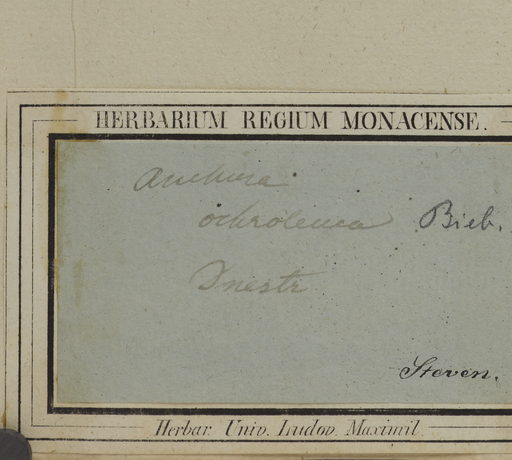 HERBARIUM REGIUM MONACENSE.
Anchusa
ochroleuca Bieb.
Dnestr
Steven.
Herbar. Univ. Ludov. Maximil.